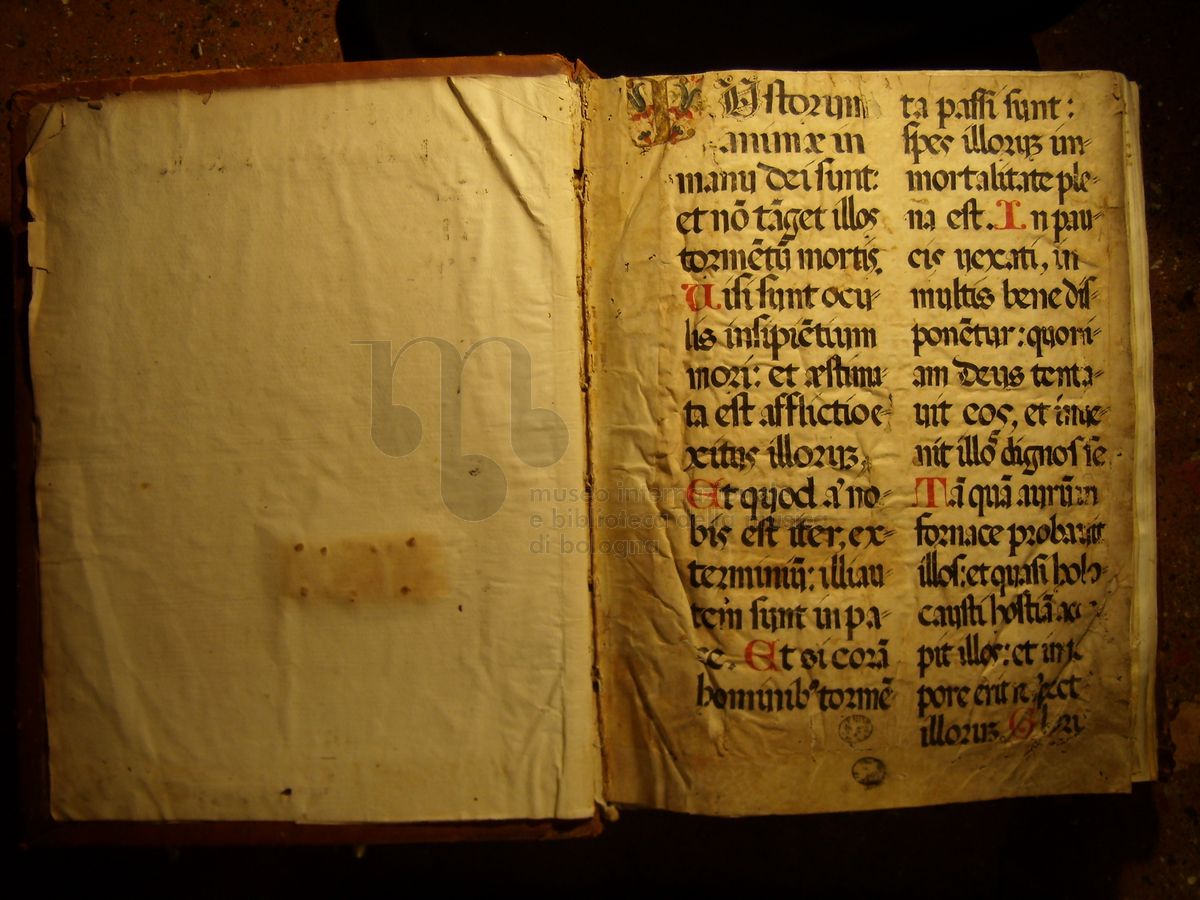 IUstorum
animæ in
manu dei sunt:
et nō tāget illos
tormētū mortis.
Uisi sunt ocu-
lis insipiētium
mori: et æstima-
ta est afflictio e-
xitus illoruꝫ.
Et quod a' no-
bis est iter, ex-
terminiū: illi au-
tem sunt in pa-
ce. Et si corā
hominibꝰ tormē
ta passi sunt:
spes illoruꝫ im-
mortalitate ple-
na est. In pau-
cis uexati, in
multis bene dis-
ponētur: quoni-
am Deus tenta-
uit eos, et inue-
nit illō dignos se
Tā quā aurū in
fornace probauit
illos: et quasi holo-
causti hostiā acce-
pit illos: et in
pore erit respect
illoruꝫ.
museo internazionale
e biblioteca della musica
di bologna